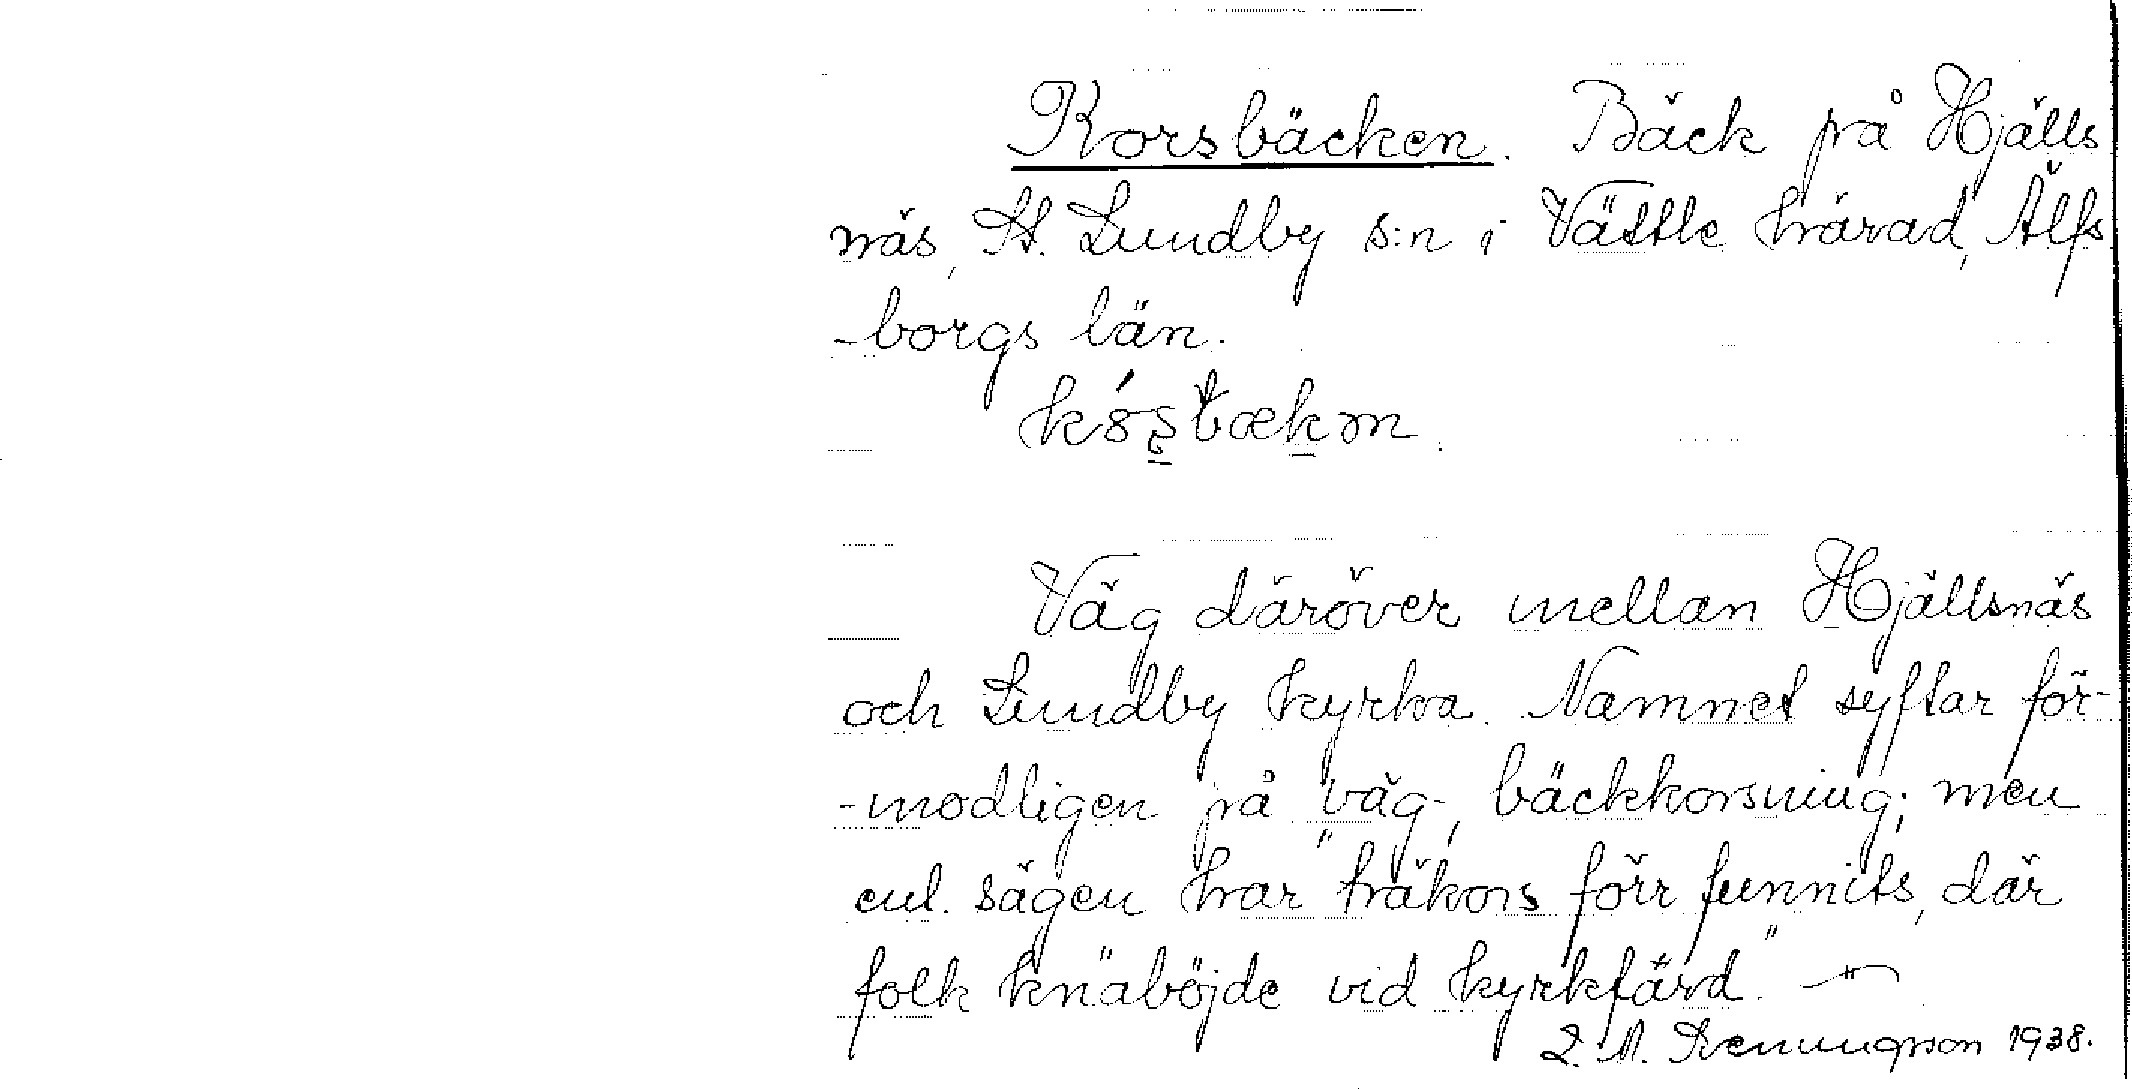 Korsbäcken. Bäck på Hjälls
näs, St. Lundby s:n i Vättle härad, Älfs
-borgs län.
Väg däröver mellan Hjällsnäs
och Lundby kyrka. Namnet syftar för-
-modligen på väg-, bäckkorsning; men
enl. sägen har "träkors förr funnits, där
folk knäböjde vid kyrkfärd."
1938.